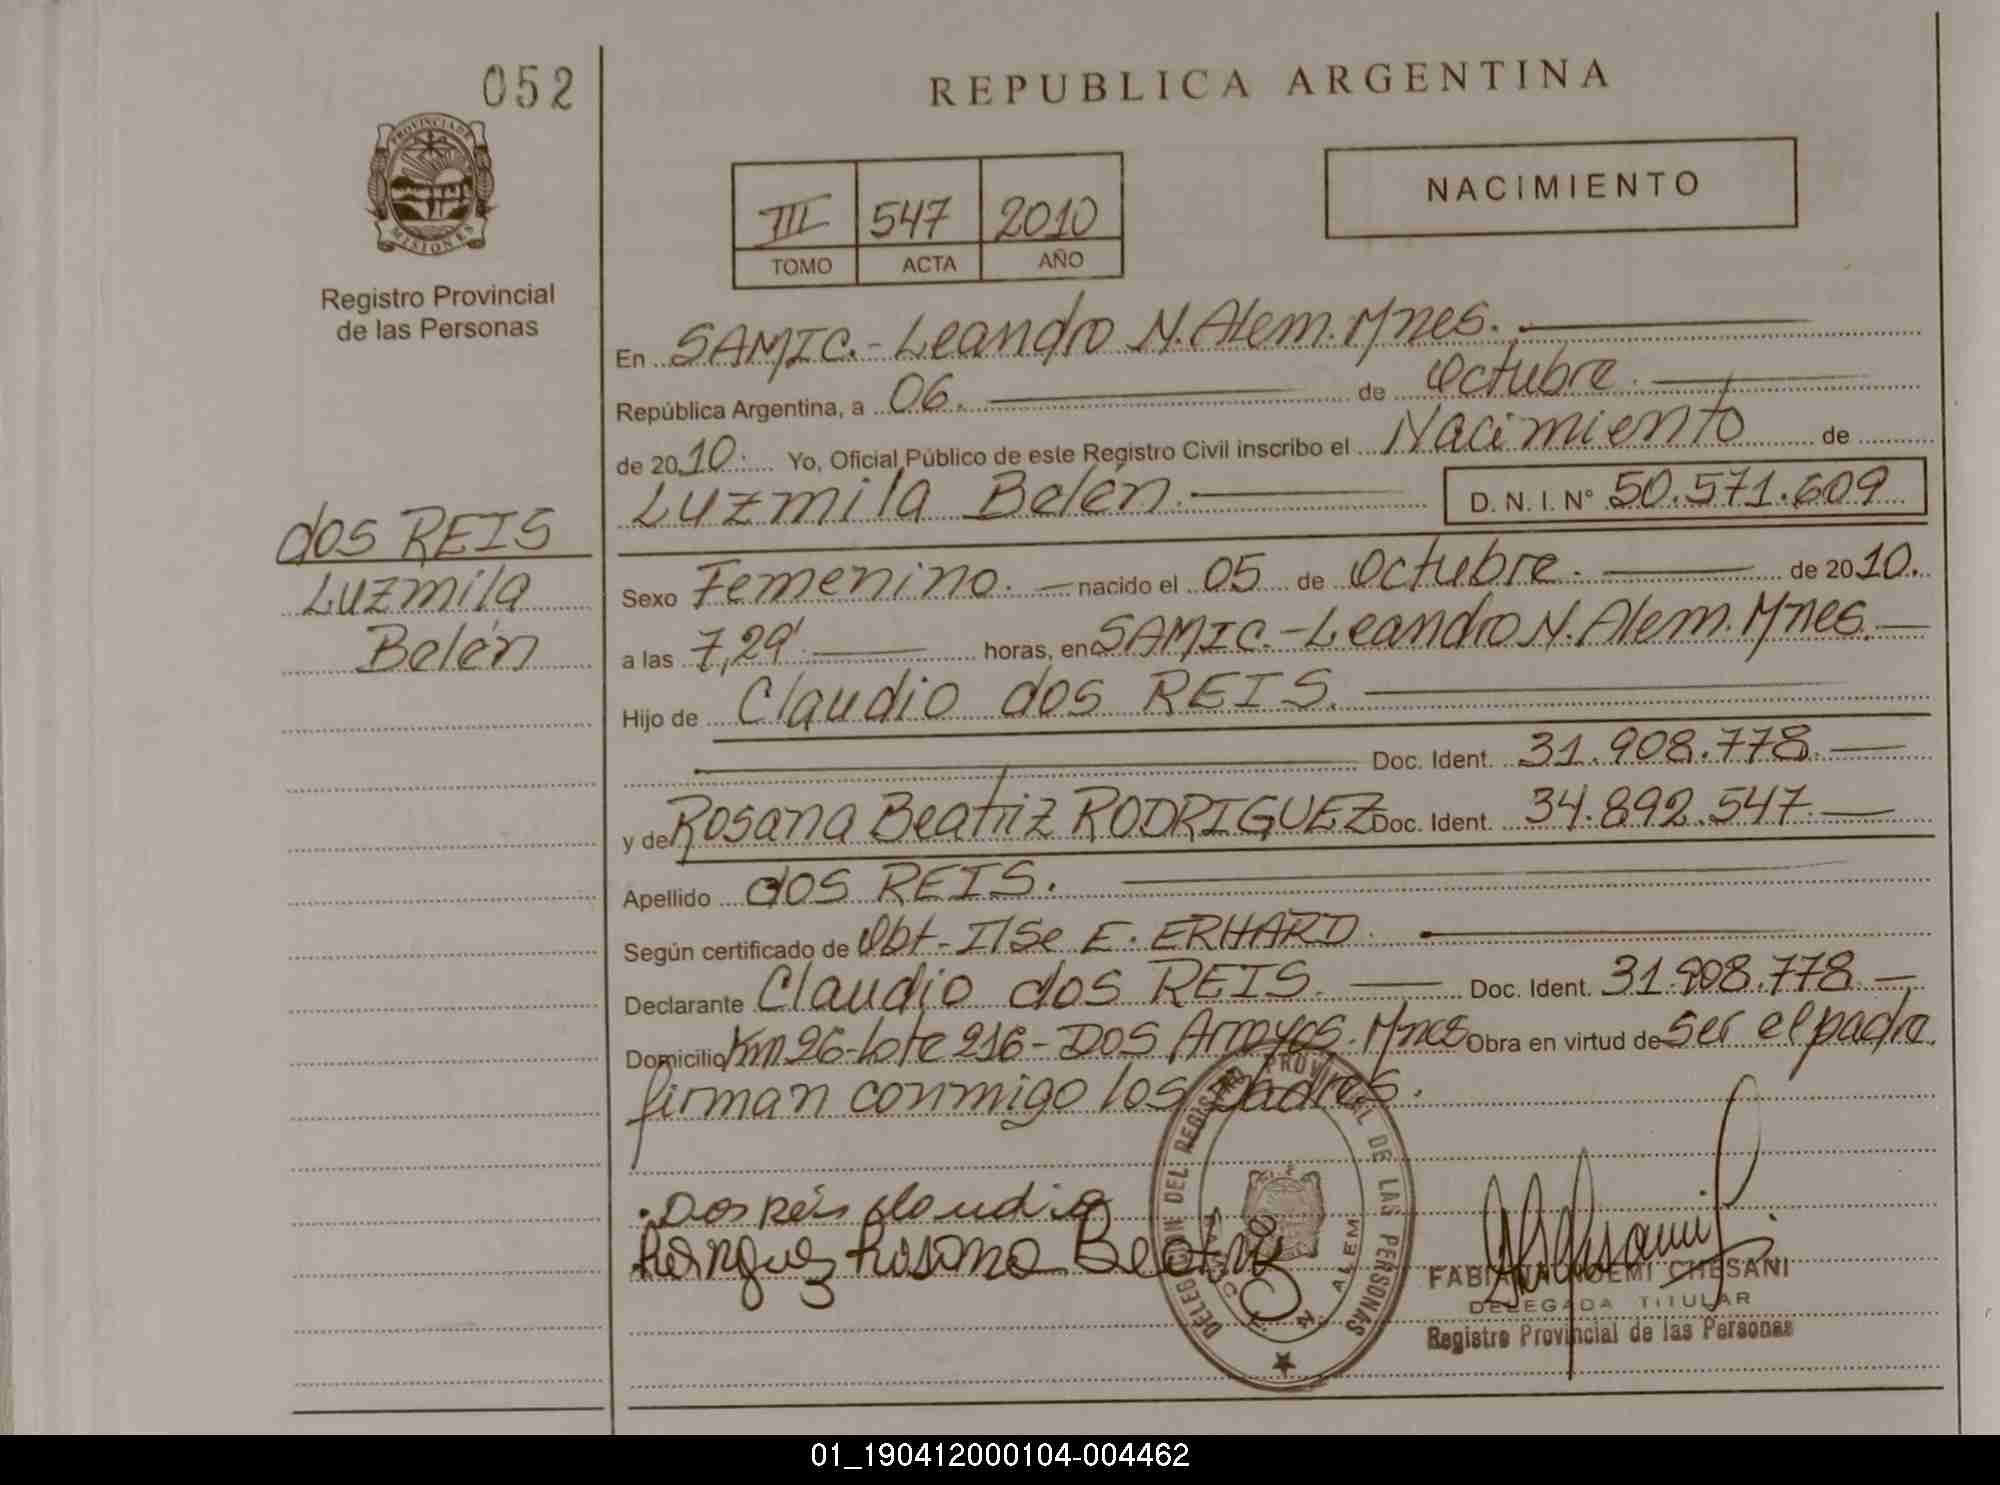 052
REPUBLICA ARGENTINA
PROVINCIA DE
MISIONES
III 547 2010
TOMO ACTA AÑO
NACIMIENTO
Registro Provincial
de las Personas
En SAMIC.- Leandro N. Alem. Mnes.
República Argentina, a 06. de Octubre
de 2010. Yo, Oficial Público de este Registro Civil inscribo el Nacimiento de
Luzmila Belén. D. N. I. N° 50.571.609
dos REIS
Luzmila
Belén
Sexo Femenino. nacido el 05 de Octubre. de 2010.
a las 7,29' horas, en SAMIC.-Leandro N. Alem. Mnes.
Hijo de Claudio dos REIS.
Doc. Ident. 31.908.778.
y de Rosana Beatriz RODRIGUEZ Doc. Ident. 34.892.547.
Apellido dos REIS.
Según certificado de Obt- Ilse E. ERHARD.
Declarante Claudio dos REIS. Doc. Ident. 31.908.778
Domicilio Km 26-lote 216-Dos Arroyos. Mnes Obra en virtud de ser el padre.
firman conmigo los padres.
Dos Reis Claudio
Rosana Beatriz
DELEGACION DEL REGISTRO PROVINCIAL DE LAS PERSONAS
ALEM
FABIANA NOEMI CHESANI
DELEGADA TITULAR
Registro Provincial de las Personas
01_190412000104-004462